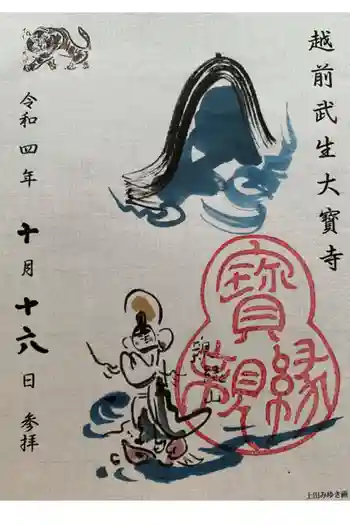 越前武生大寳寺
寳
縁
観
令和四年
十月十六日 参拝
上田みゆき画